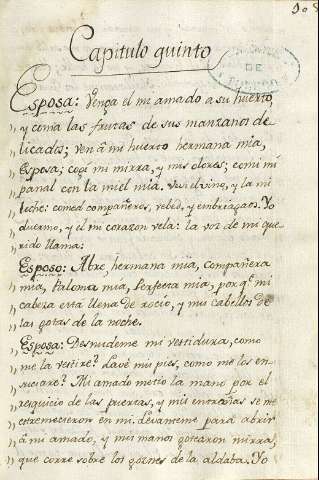 Capitulo quinto
Esposa: Venga el mi amado a su huerto,
" y coma las frutas de sus manzanos de
" licados; ven â mi huerto hermana mia,
" Esposa; cogi mi mirra, y mis olores; comi mi
" panal con la miel mia. Vevi el vino, y la mi
" leche: comed compañeros, vebed, y embriagaos. Yo
" duermo, y el mi corazon vela: la voz de mi que
" rido llama:
Esposo: Abre, hermana mia, compañera
" mia, Paloma mia, Perfecta mia; porq.e mi
" cabeza està llena de rocio, y mis cabellos de
" las gotas de la noche.
Esposa: Desnudeme mi vestidura, como
" me la vestire? Lavè mis pies, como me los en
" suciarè? Mi amado metio la mano por el
" resquicio de las puertas, y mis entrañas se me
" estremecieron en mi. Levanteme para abrir
" â mi amado, y mis manos gotearon mirra,
" que corre sobre los goznes de la aldaba. Yo
DE